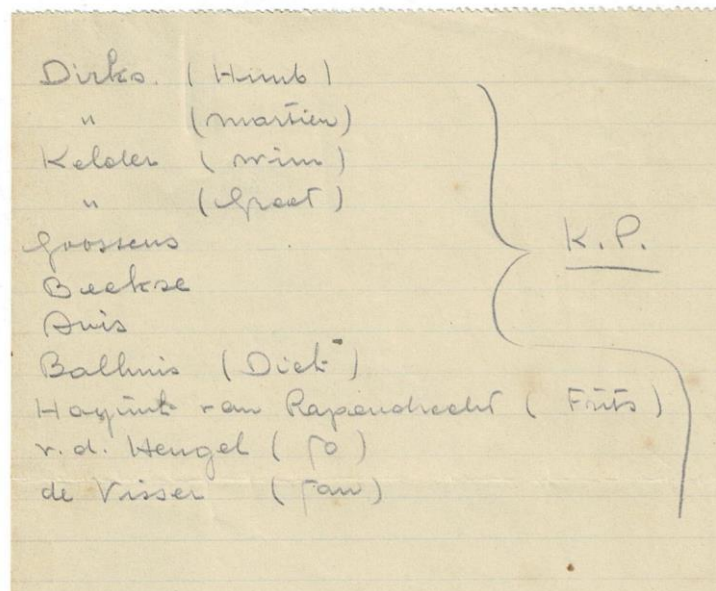 Dirks. (Himb)
" (Martien)
Kelder (Wim)
" (Groot)
Goossens
Beekse
Buis
Balhuis (Dick)
van Rapendrecht (Frits)
v.d. Hengel (Jo)
de Visser (Jan)
K.P.